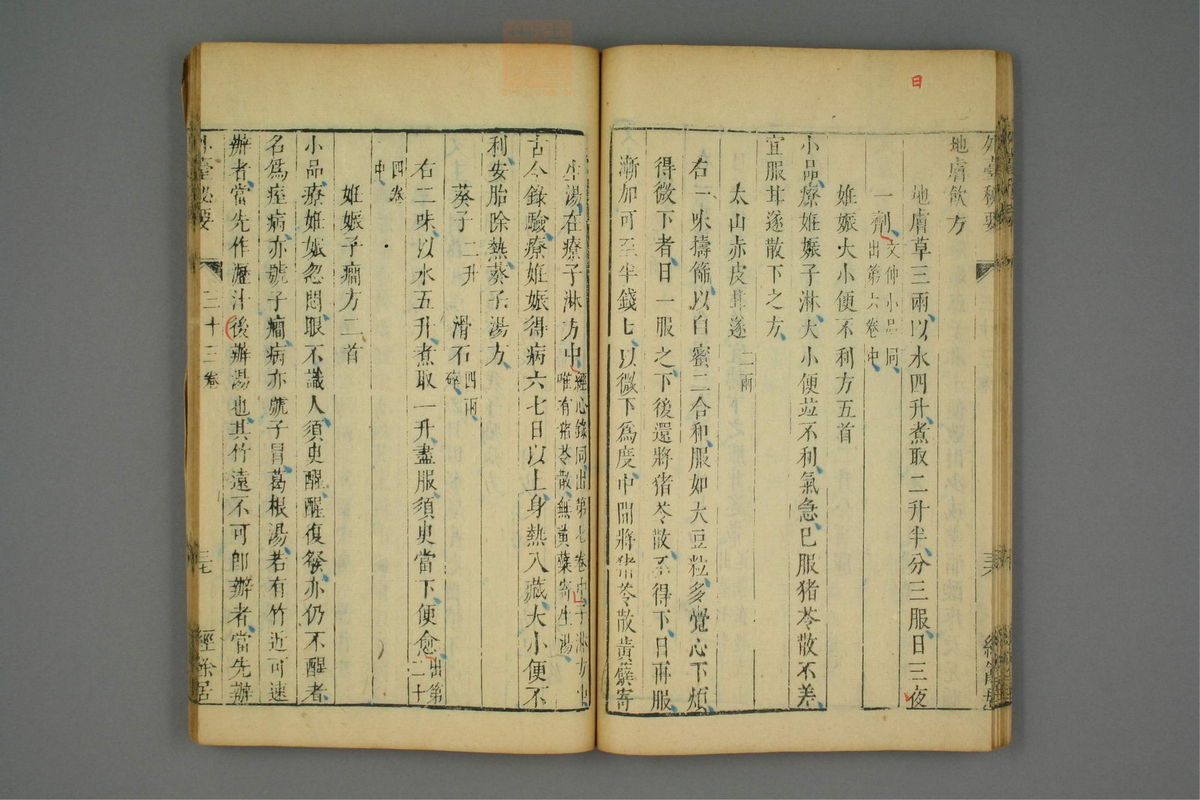 外臺秘要
地膚飲方
地膚草三兩以水四升煮取二升半分三服日三夜
一劑文仲小品同出第六卷中
姙娠大小便不利方五首
小品療姙娠子淋大小便並不利氣急已服猪苓散不差
宜服甘遂散下之方
太山赤皮甘遂二兩
右一味擣篩以白蜜二合和服如大豆粒多覺心下煩
得微下者日一服之下後還將猪苓散不得下日再服
漸加可至半錢匕以微下爲度中間將猪苓散黃蘗寄
生湯在療子淋方中經心錄同出第七卷中子淋方中唯有猪苓散無黃蘗寄生湯
古今錄驗療姙娠得病六七日以上身熱入藏大小便不
利安胎除熱葵子湯方
葵子二升　滑石四兩碎
右二味以水五升煮取一升盡服須臾當下便愈出第二十
四卷中
姙娠子癎方二首
小品療姙娠忽悶眼不識人須臾醒醒復發亦仍不醒者
名爲痙病亦號子癎病亦號子冒葛根湯若有竹近可速
辦者當先作瀝汁後辦湯也其竹遠不可卽辦者當先辦
外臺秘要　三十三卷　三七　經餘居
日